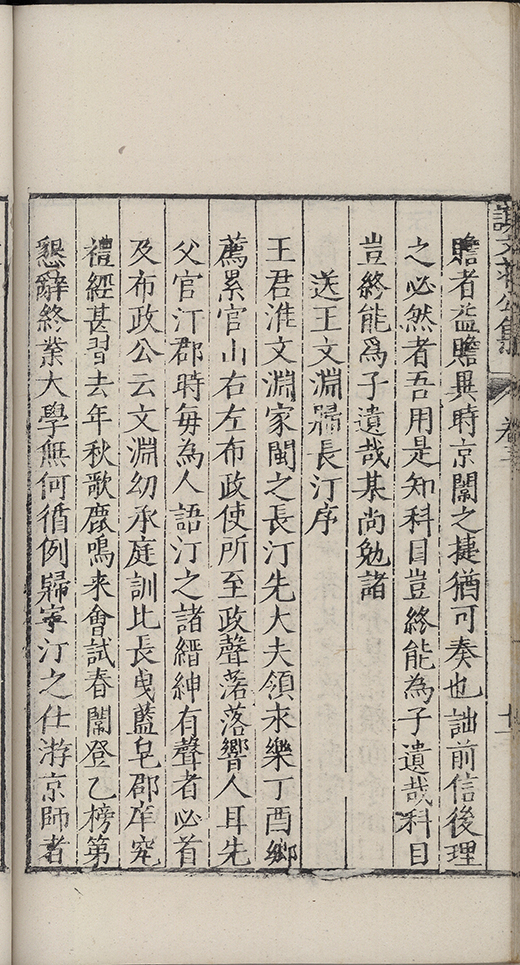 贍者益贍異時京闈之捷猶可奏也詘前信後理
之必然者吾用是知科目豈終能為子遺哉科目
豈終能爲子遺哉某尚勉諸
送王文淵歸長汀序
王君淮文淵家閩之長汀先大夫領永樂丁酉鄉
薦累官山右左布政使所至政聲落落響人耳先
父官汀郡時每為人語汀之諸縉紳有聲者必首
及布政公云文淵幼承庭訓比長曳藍皂郡庠究
禮經甚習去年秋歌鹿鳴来會試春闈登乙榜第
懇辭終業大學無何循例歸寧汀之仕游京師者